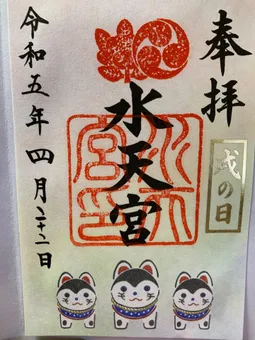 奉拝
戌の日
水天宮
水天
宮印
令和五年四月二十二日